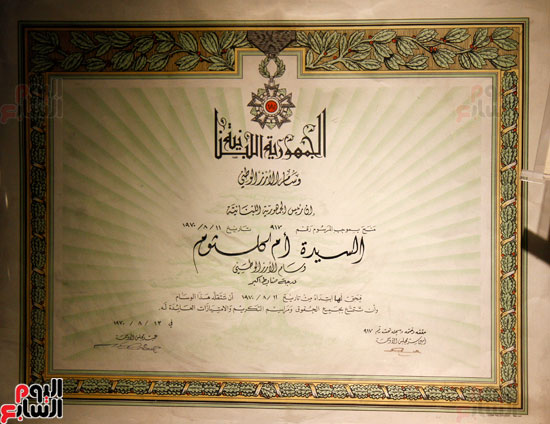 الجمهورية اللبنانية
وسام الأرز الوطني
إن رئيس الجمهورية اللبنانية
منح بموجب المرسوم رقم ٩١٧ تاريخ ١١ / ٨ / ١٩٧٠
السيدة أم كلثوم
وسام الأرز الوطني
درجة ضابط أكبر
فيحق لها ابتداء من تاريخ ١١ / ٨ / ١٩٧٠ أن تتقلد هذا الوسام
وأن تتمتع بجميع الحقوق ومراسيم التكريم والامتيازات العائدة له.
في ١٢ / ٨ / ١٩٧٠
تحت رقم ٩١٧
اليوم السابع